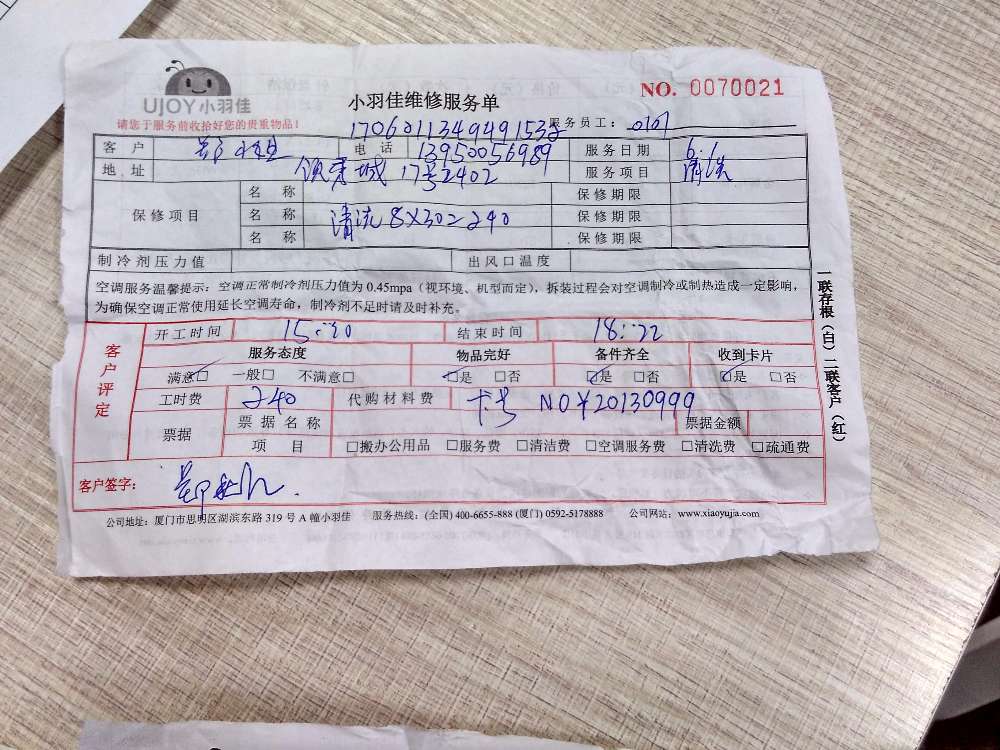 UJOY小羽佳
小羽佳维修服务单
NO. 0070021
请您于服务前收拾好您的贵重物品!
170601134949153
服务员工: 0107
客户 郑 电话 13950056989 服务日期 6.1
地址 城 17号2402 服务项目 清洗
保修项目
名称 保修期限
名称 清洗 8X30=240 保修期限
名称 保修期限
制冷剂压力值 出风口温度
空调服务温馨提示:空调正常制冷剂压力值为 0.45mpa(视环境、机型而定),拆装过程会对空调制冷或制热造成一定影响,
为确保空调正常使用延长空调寿命,制冷剂不足时请及时补充。
开工时间 15:20 结束时间 18:22
客户评定
服务态度 物品完好 备件齐全 收到卡片
满意□ 一般□ 不满意□ □是 □否 □是 □否 □是 □否
工时费 240 代购材料费 卡号 NO¥20130999
票据
票据名称 票据金额
项目 □搬办公用品 □服务费 □清洁费 □空调服务费 □清洗费 □疏通费
客户签字: 郑
公司地址:厦门市思明区湖滨东路 319 号 A 幢小羽佳 服务热线:(全国) 400-6655-888 (厦门) 0592-5178888 公司网站:www.xiaoyujia.com
一联存根(白)二联客户(红)